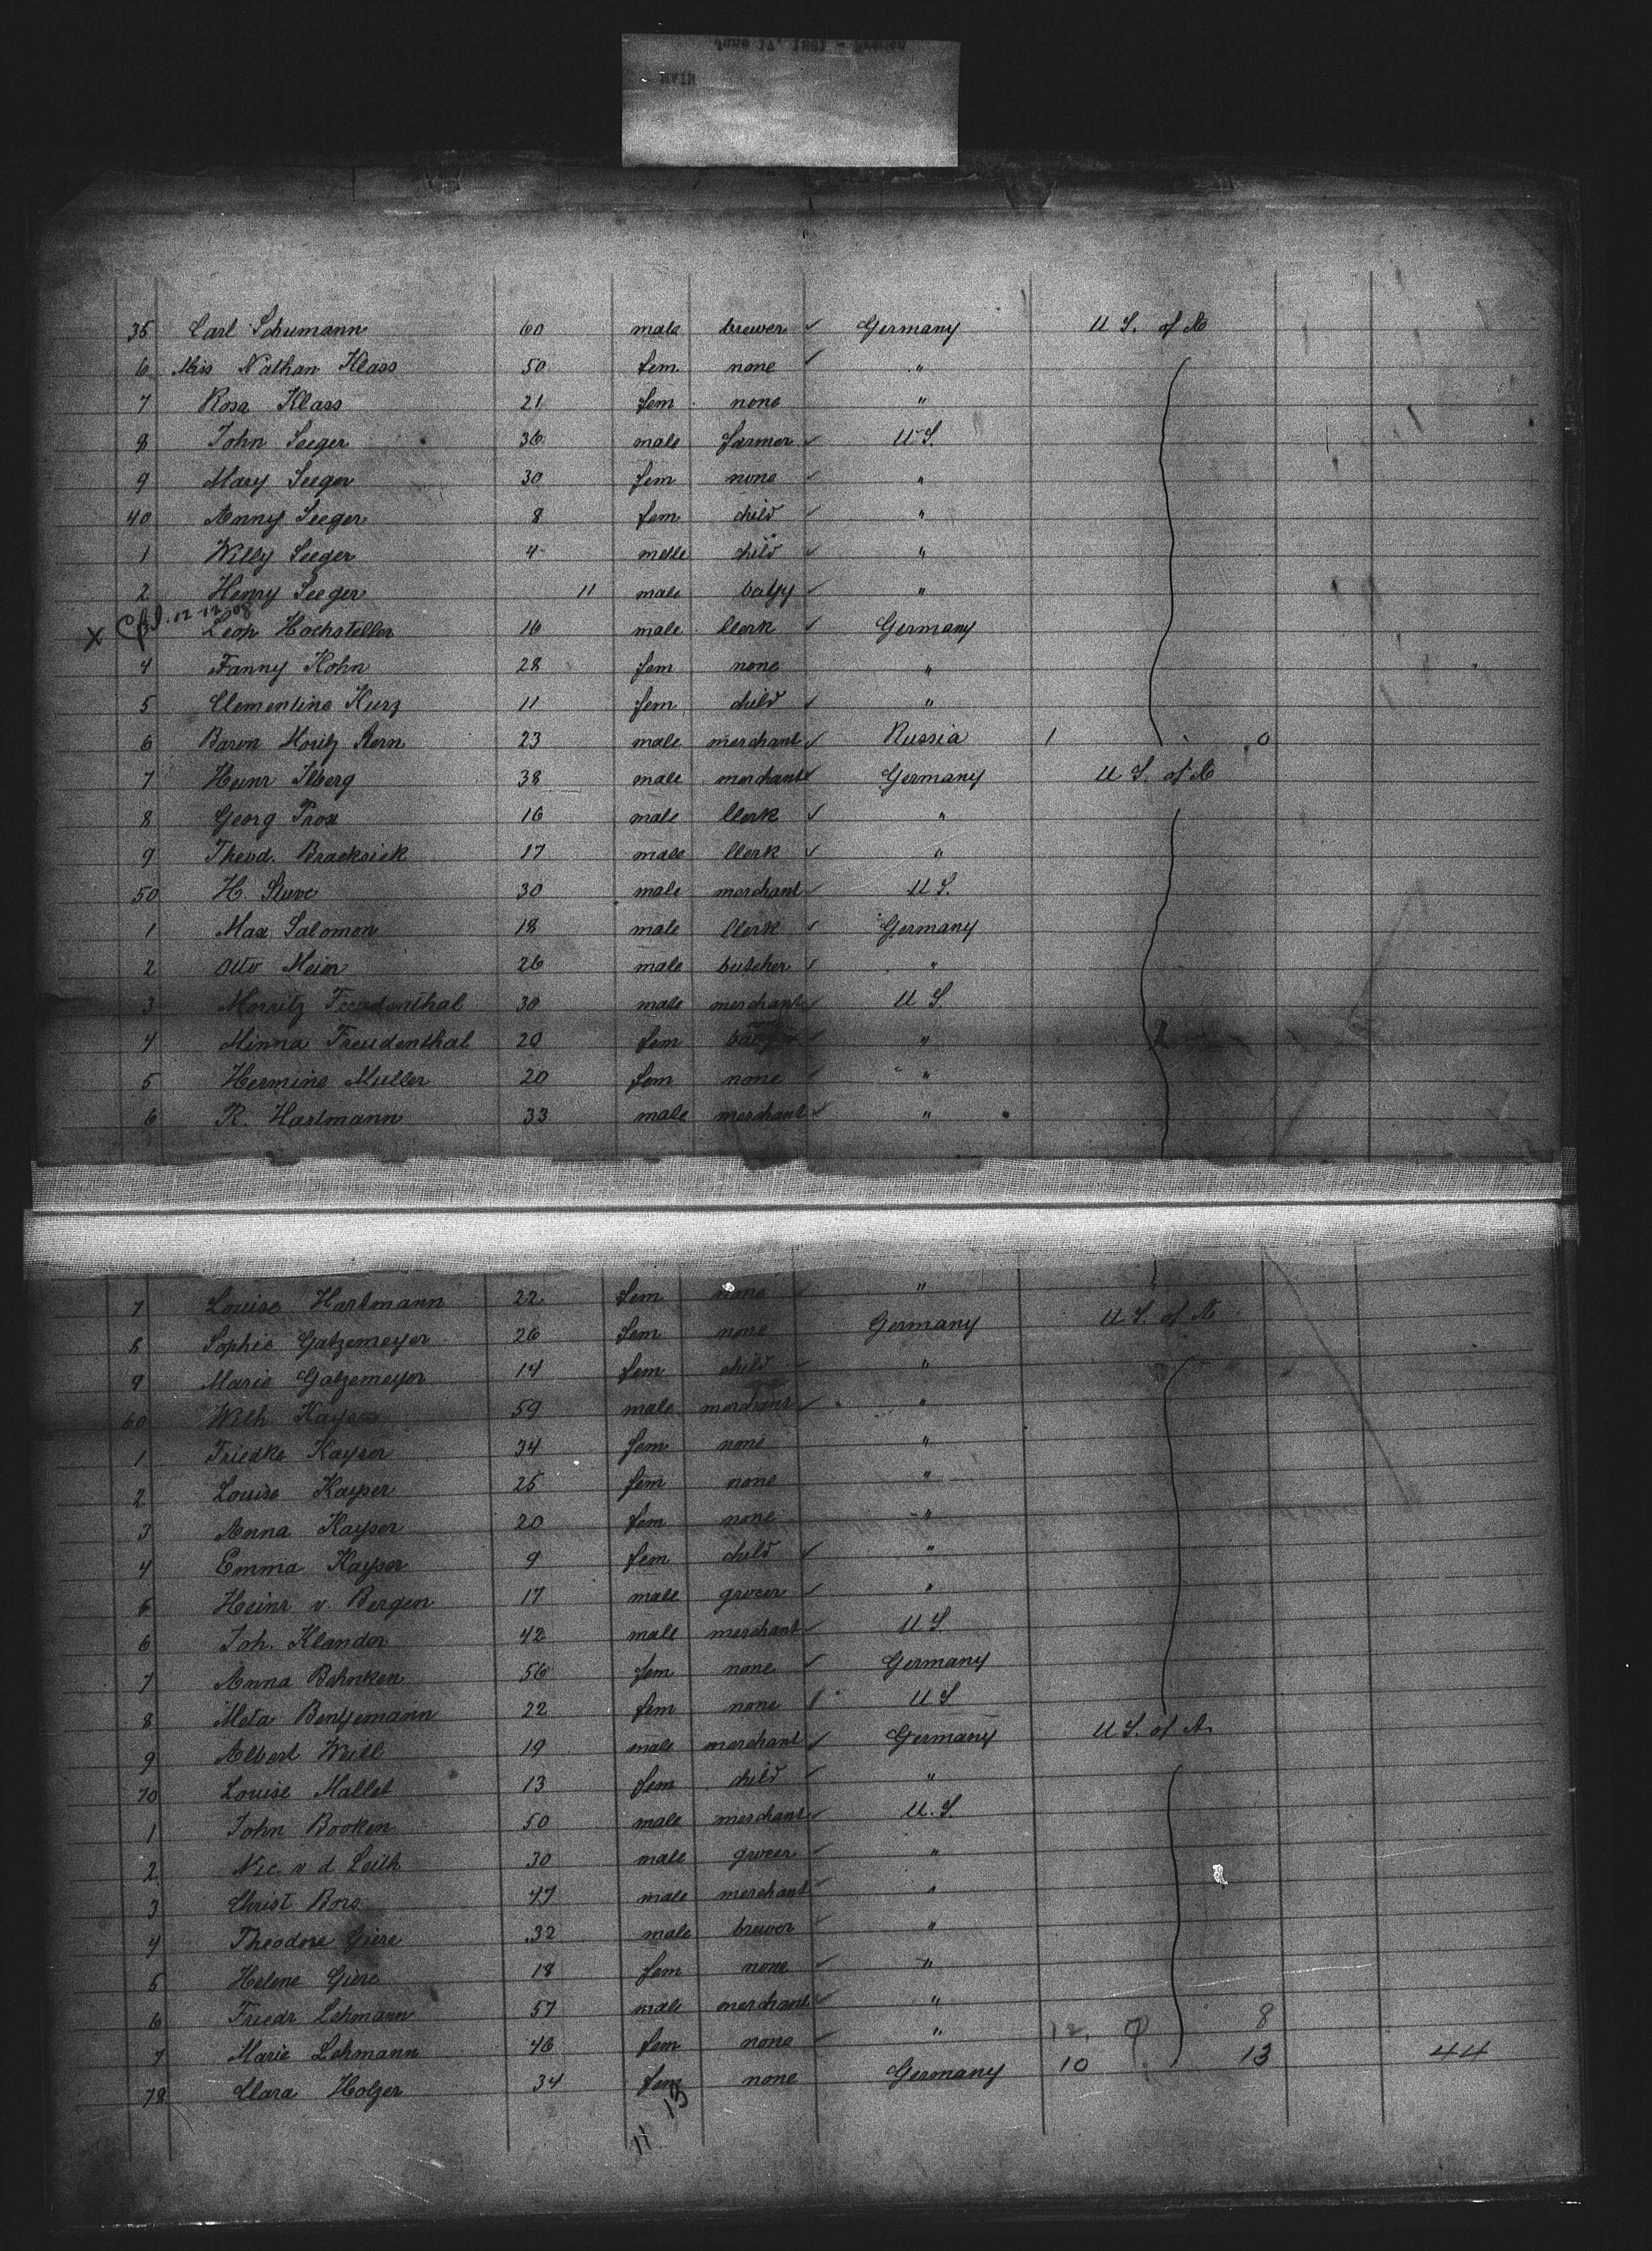 35 Carl Schumann 60 male brewer ✓ Germany U S. of A
6 Mrs Nathan Klass 50 fem none ✓ "
7 Rosa Klass 21 fem none "
8 John Seeger 36 male farmer ✓ U S.
9 Mary Seeger 30 fem none ✓ "
40 Anny Seeger 8 fem child ✓ "
1 Willy Seeger 4 male child ✓ "
2 Henry Seeger 11 male baby ✓ "
X 12 12/08
Leop Hochstetter 16 male Clerk ✓ Germany
4 Fanny Kohn 28 fem none "
5 Clementine Kurz 11 fem child ✓ "
6 Baron Moritz 23 male merchant ✓ Russia 1 0
7 Heinr Ilberg 38 male merchant ✓ Germany U S. of A
8 Georg Prox 16 male Clerk ✓ "
9 Theod. Bracksiek 17 male Clerk ✓ "
50 H. Stuve 30 male merchant ✓ U S.
1 Max Salomon 18 male Clerk ✓ Germany
2 Otto Meier 26 male butcher ✓ "
3 Morritz Freudenthal 30 male merchant ✓ U S.
4 Minna Freudenthal 20 fem ✓ "
5 Hermine Muller 20 fem none ✓ "
6 R. Hartmann 33 male merchant ✓ "
7 Louise Hartmann 22 fem none ✓ "
8 Sophie Gatzemeyer 26 fem none Germany U S. of A
9 Marie Gatzemeyer 14 fem child ✓ "
60 Wilh. Kayser 59 male merchant ✓ "
1 Friedke Kayser 34 fem none "
2 Louise Kayser 25 fem none "
3 Anna Kayser 20 fem none "
4 Emma Kayser 9 fem child ✓ "
5 Heinr v. Bergen 17 male grocer ✓ "
6 Joh. Klander 42 male merchant ✓ U S.
7 Anna Behnken 56 fem none ✓ Germany
8 Meta 22 fem none ✓ U S
9 Albert Weill 19 male merchant ✓ Germany U S. of A
70 Louise Mallet 13 fem child ✓ "
1 John Booken 50 male merchant ✓ U. S.
2 Nic. v d Leith 30 male grocer ✓ "
3 Christ Bors 47 male merchant ✓ "
4 Theodore Giere 32 male brewer ✓ "
5 Helene Giere 18 fem none ✓ "
6 Friedr Lehmann 57 male merchant ✓ " 8
7 Marie Lehmann 46 fem none ✓ " 12.
78 Clara Holzer 34 fem none Germany 10 13 44
11 13